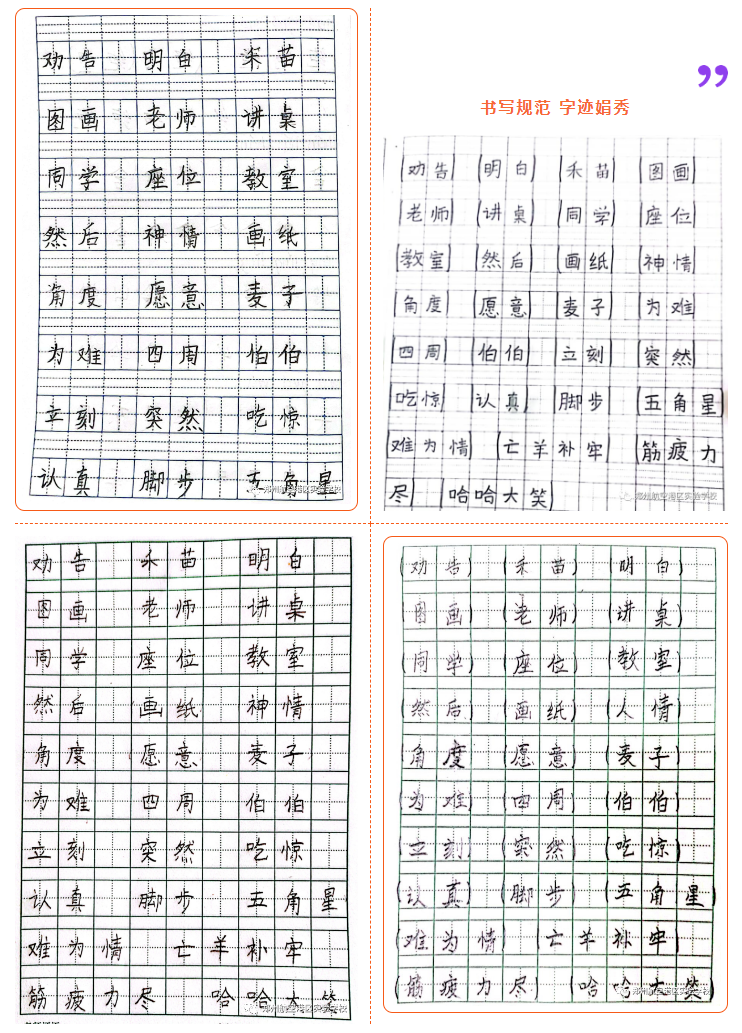 劝告 明白 禾苗
图画 老师 讲桌
同学 座位 教室
然后 神情 画纸
角度 愿意 麦子
为难 四周 伯伯
立刻 突然 吃惊
认真 脚步 五角星
书写规范 字迹娟秀
(劝告) (明白) (禾苗) (图画)
(老师) (讲桌) (同学) (座位)
(教室) (然后) (画纸) (神情)
(角度) (愿意) (麦子) (为难)
(四周) (伯伯) (立刻) (突然)
(吃惊) (认真) (脚步) (五角星)
(难为情) (亡羊补牢) (筋疲力
尽) (哈哈大笑)
郑州航空港区实验学校
劝告 禾苗 明白
图画 老师 讲桌
同学 座位 教室
然后 画纸 神情
角度 愿意 麦子
为难 四周 伯伯
立刻 突然 吃惊
认真 脚步 五角星
难为情 亡羊补牢
筋疲力尽 哈哈大笑
(劝告) (禾苗) (明白)
(图画) (老师) (讲桌)
(同学) (座位) (教室)
(然后) (画纸) (人情)
(角度) (愿意) (麦子)
(为难) (四周) (伯伯)
(立刻) (突然) (吃惊)
(认真) (脚步) (五角星)
(难为情) (亡羊补牢)
(筋疲力尽) (哈哈大笑)